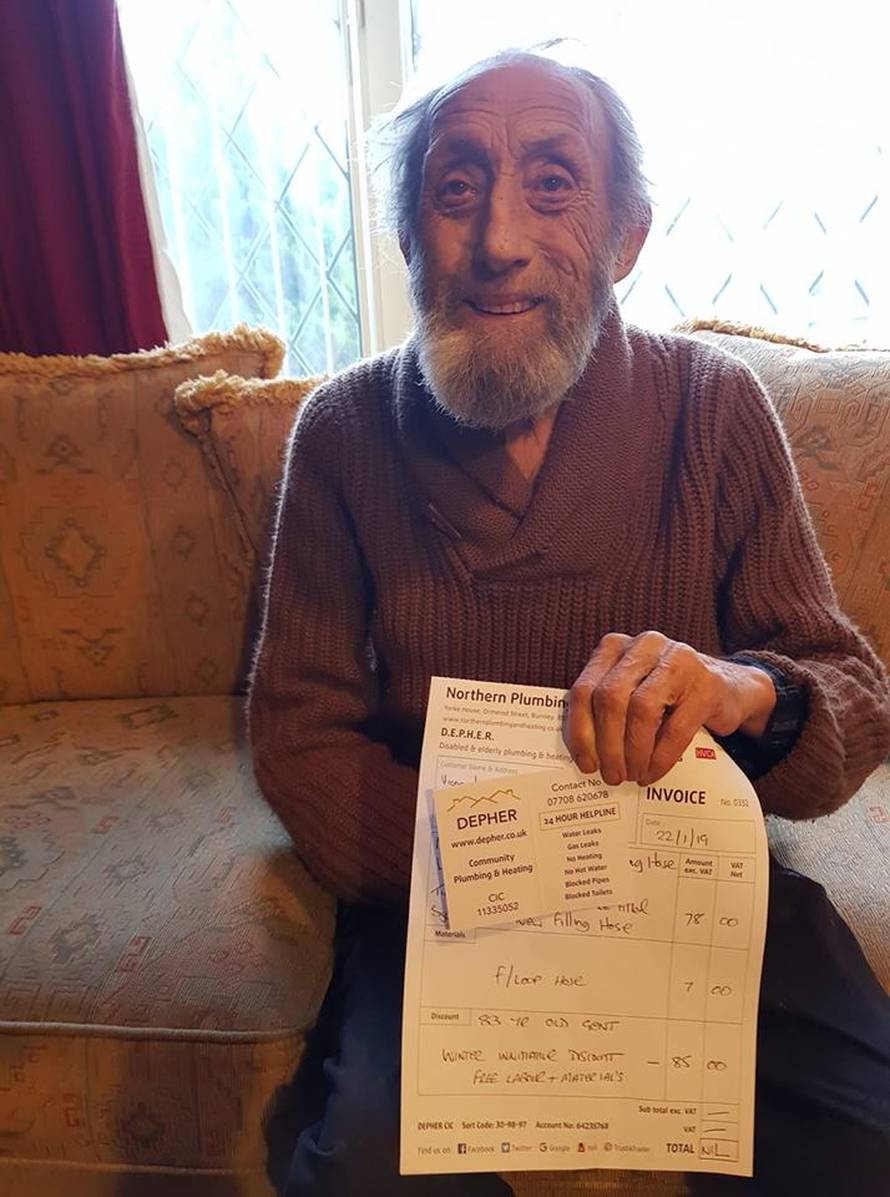 Northern Plumbing
Yorke House, Ormerod Street, Burnley,
www.northernplumbingandheating.co.uk
D.E.P.H.E.R.
Disabled & elderly plumbing & heating
HVCA
Customer Name & Address
INVOICE
No. 0332
Date
22/1/19
DEPHER
www.depher.co.uk
Community
Plumbing & Heating
CIC
11335052
Contact No
07708 620678
24 HOUR HELPLINE
Water Leaks
Gas Leaks
No Heating
No Hot Water
Blocked Pipes
Blocked Toilets
Hose
Amount exc. VAT
VAT Net
New Filling Hose
78 00
Materials
F/LOOP HOSE
7 00
Discount
83 YR OLD GENT
WINTER INNITIATIVE DISCOUNT - 85 00
FREE LABOUR + MATERIAL'S
Sub total exc. VAT —
VAT —
DEPHER CIC Sort Code: 30-98-97 Account No: 64235768
Find us on: Facebook Twitter Google Yell TrustATrader
TOTAL NIL